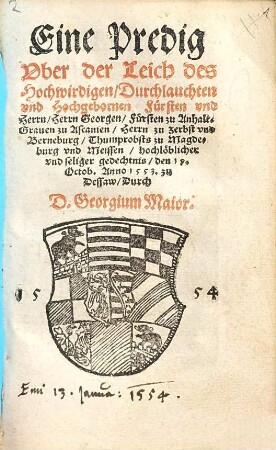 Eine Predig
Vber der Leich des
Hochwirdigen/Durchlauchten
vnd Hochgebornen Fürsten vnd
Herrn/Herrn Georgen/Fürsten zu Anhalt-
Grauen zu Ascanien/Herrn zu Zerbst vnd
Berneburg/Thumprobsts zu Magde-
burg vnd Meissen/hochlöblicher
vnd seliger gedechtnis/den 19.
Octob. Anno 1553. zu
Dessaw/Durch
D. Georgium Maior.
15 54
Emi 13. Janua: 1554.